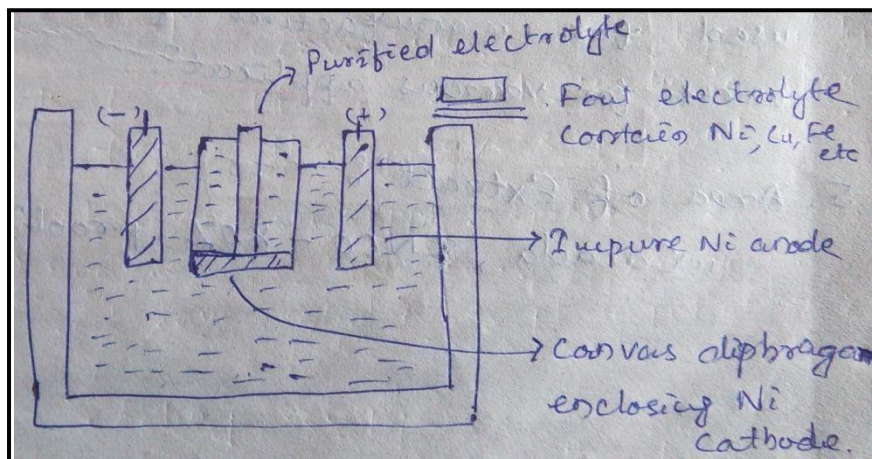 Purified electrolyte
(-)
(+)
Foul electrolyte
contains Ni, Cu, Fe
etc
Impure Ni anode
Canvas diphragam
enclosing Ni
Cathode.